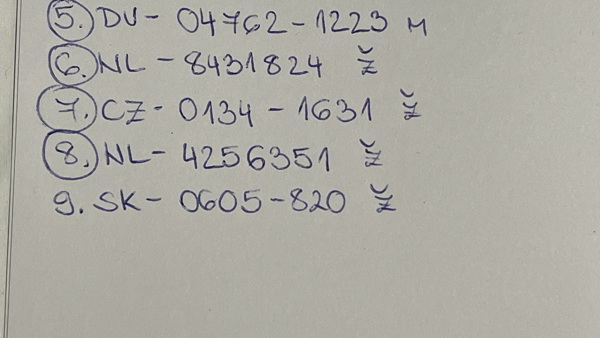 5. DV- 04762-1223 M
6. NL - 8431824 Ž
7. CZ- 0134 - 1631 Ž
8. NL- 4256351 Ž
9. SK- 0605-820 Ž